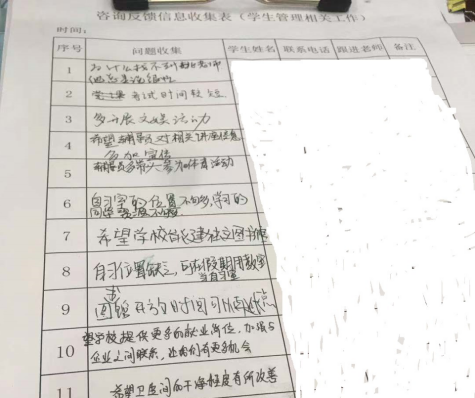 咨询反馈信息收集表（学生管理相关工作）
时间：
序号 问题收集 学生姓名 联系电话 跟进老师 备注
1 为什么校不到
2 考试时间较短
3 多开展文娱活动
4 希望辅导员对相关讲座信息
多加宣传
5 辅导员多带大家参加体育活动
6 自习室的位置不够多，学习的
同学
7 希望学校能建社区图书馆
8 自习位置缺乏，可在假期用教室
当自习室
9 图馆开放时间可
10 望学校提供更多的就业岗位，加强与
企业之间联系，让我们有更多机会
11 希望卫生间的干净程度有所改善